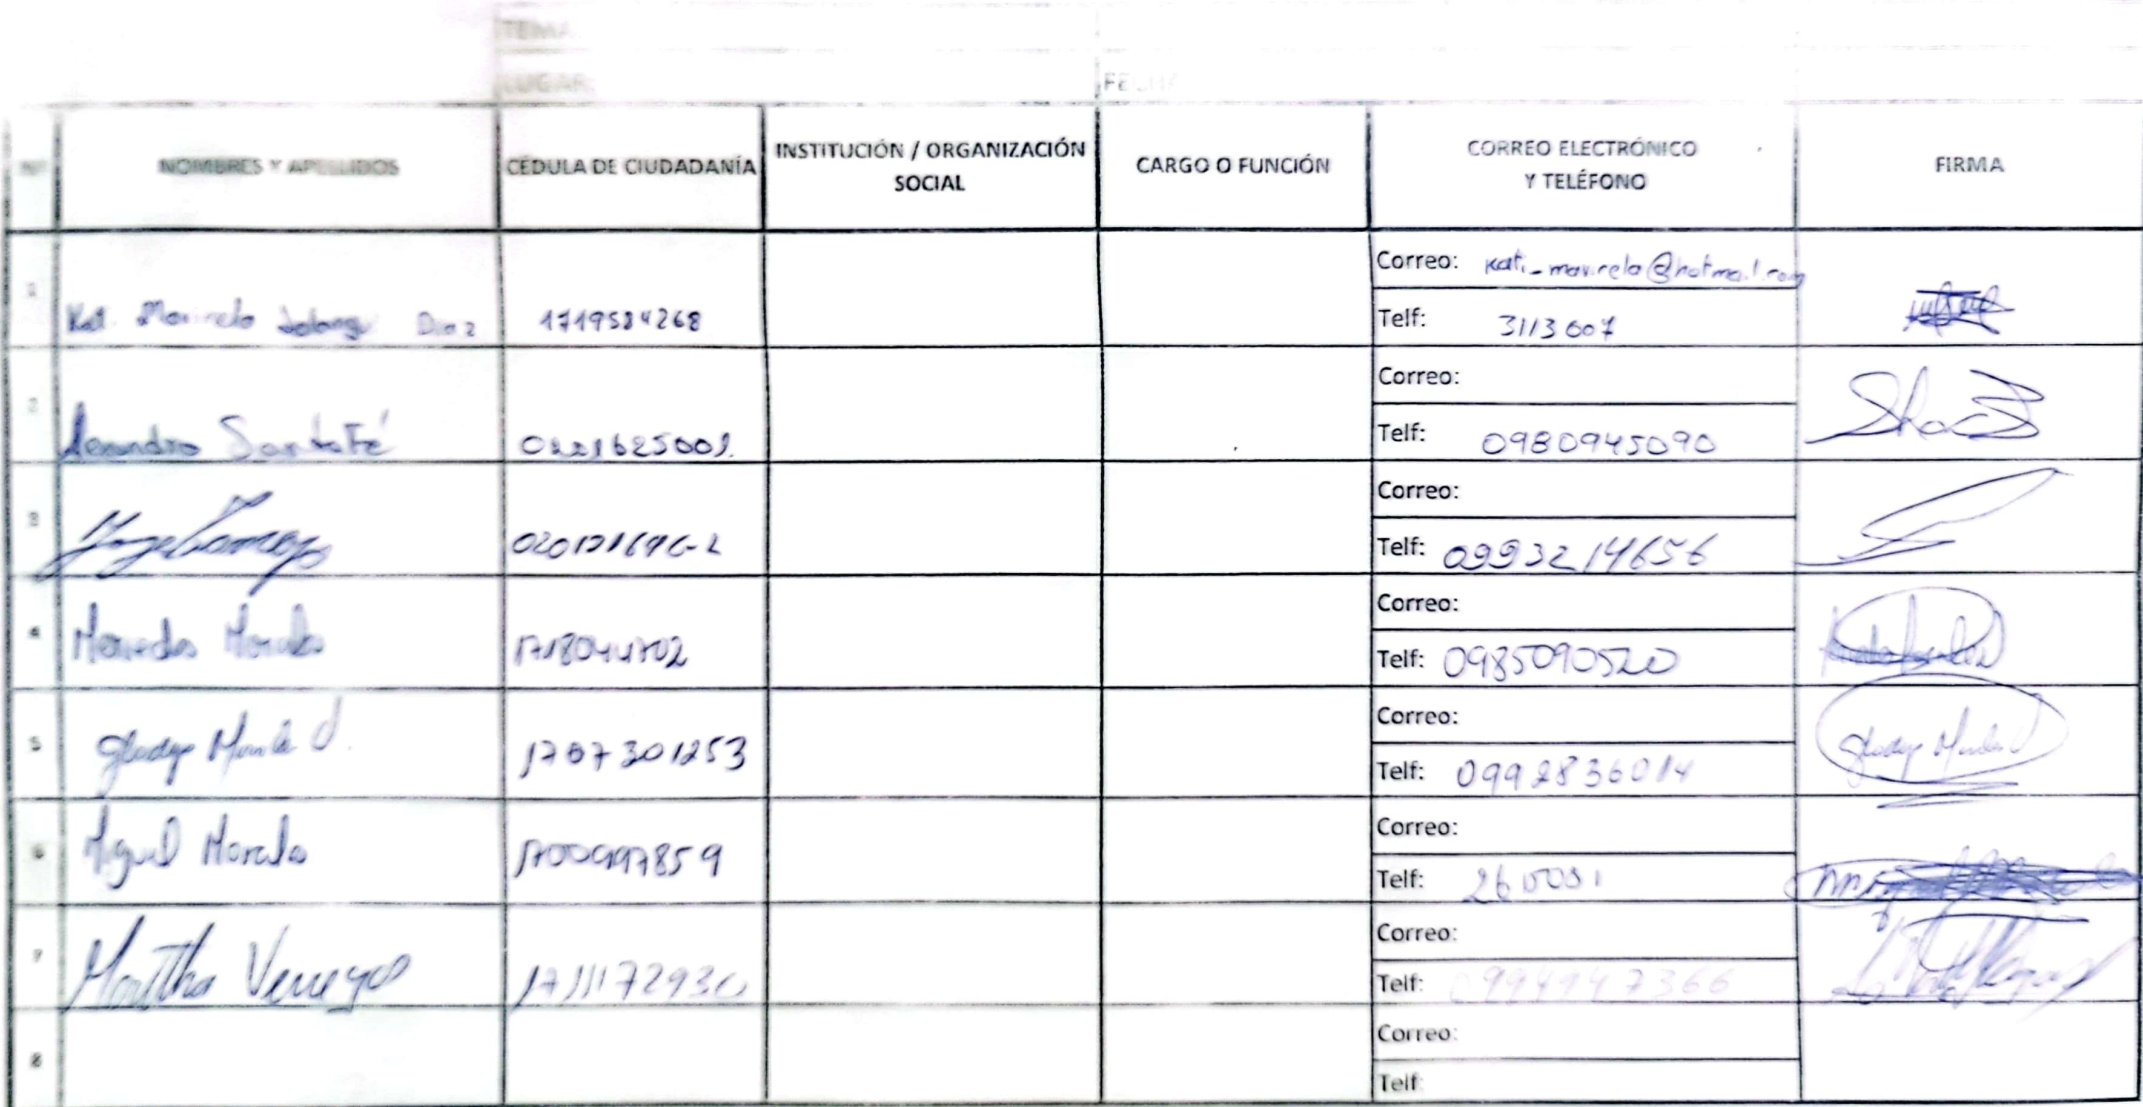 TEMA:
LUGAR: FECHA
Nº NOMBRES Y APELLIDOS CÉDULA DE CIUDADANÍA INSTITUCIÓN / ORGANIZACIÓN SOCIAL CARGO O FUNCIÓN CORREO ELECTRÓNICO Y TELÉFONO FIRMA
1 Kati Marirela Diaz 1719584268 Correo: kati_marirela@hotmail.com
Telf: 3113607
2 Alexandra SantaFé Correo:
Telf: 0980945090
3 Correo:
Telf: 0993214656
4 Mercedes Morales 1718044702 Correo:
Telf: 0985090520
5 Gladys 1707301253 Correo:
Telf: 0992836014 Gladys
6 Miguel Morales Correo:
Telf:
7 Martha 1711172930 Correo:
Telf: 0994947366
8 Correo:
Telf: